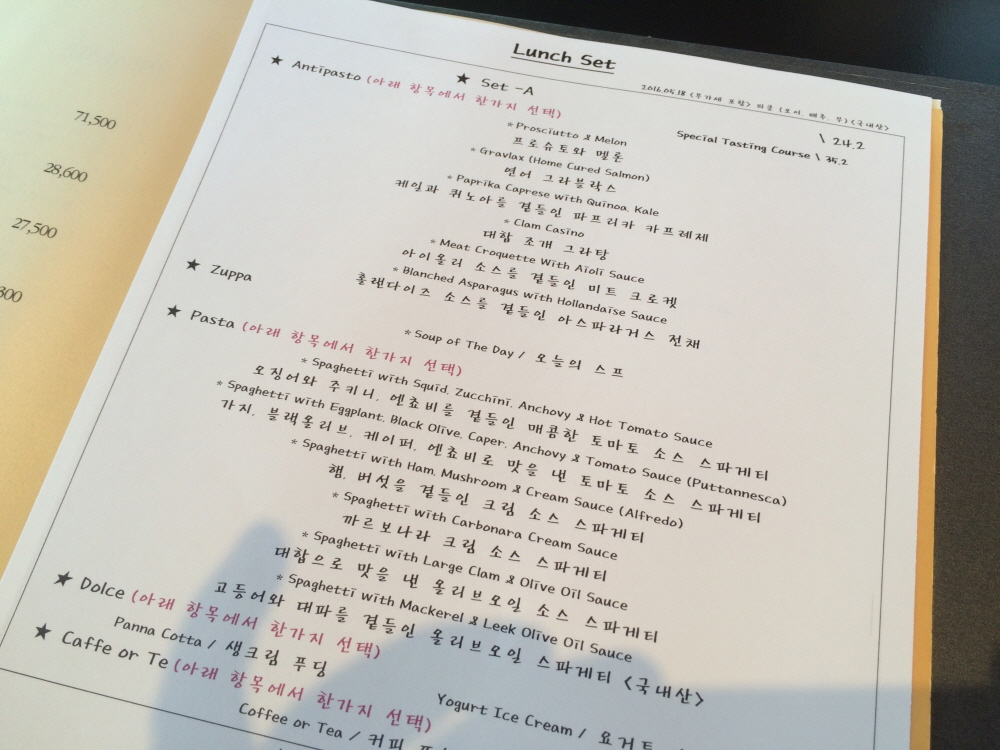 71,500
28,600
27,500
300
Lunch Set
★ Set -A
2016.05.18 <부가세 포함> 피클 (오이, 배추, 무) <국내산>
\ 24.2
Special Tasting Course \ 35.2
★ Antipasto (아래 항목에서 한가지 선택)
* Prosciutto & Melon
프로슈토와 멜론
* Gravlax (Home Cured Salmon)
연어 그라블락스
* Paprika Caprese with Quinoa, Kale
케일과 퀴노아를 곁들인 파프리카 카프레제
* Clam Casino
대합 조개 그라탕
* Meat Croquette With Aioli Sauce
아이올리 소스를 곁들인 미트 크로켓
* Blanched Asparagus with Hollandaise Sauce
홀랜다이즈 소스를 곁들인 아스파라거스 전채
★ Zuppa
* Soup of The Day / 오늘의 스프
★ Pasta (아래 항목에서 한가지 선택)
* Spaghetti with Squid, Zucchini, Anchovy & Hot Tomato Sauce
오징어와 주키니, 엔쵸비를 곁들인 매콤한 토마토 소스 스파게티
* Spaghetti with Eggplant, Black Olive, Caper, Anchovy & Tomato Sauce (Puttannesca)
가지, 블랙올리브, 케이퍼, 엔쵸비로 맛을 낸 토마토 소스 스파게티
* Spaghetti with Ham, Mushroom & Cream Sauce (Alfredo)
햄, 버섯을 곁들인 크림 소스 스파게티
* Spaghetti with Carbonara Cream Sauce
까르보나라 크림 소스 스파게티
* Spaghetti with Large Clam & Olive Oil Sauce
대합으로 맛을 낸 올리브오일 소스 스파게티
* Spaghetti with Mackerel & Leek Olive Oil Sauce
고등어와 대파를 곁들인 올리브오일 스파게티 <국내산>
★ Dolce (아래 항목에서 한가지 선택)
Panna Cotta / 생크림 푸딩
Yogurt Ice Cream / 요거트
★ Caffe or Te (아래 항목에서 한가지 선택)
Coffee or Tea / 커피